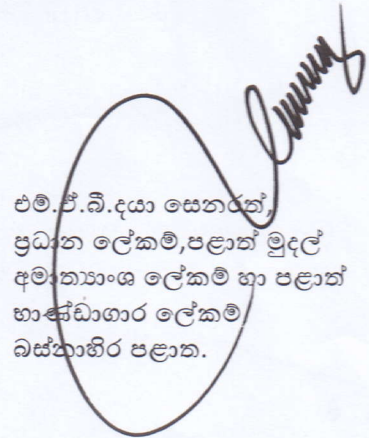 එම්.ඒ.බී.දයා සෙනරත්,
ප්‍රධාන ලේකම්,පළාත් මුදල්
අමාත්‍යාංශ ලේකම් හා පළාත්
භාණ්ඩාගාර ලේකම්,
බස්නාහිර පළාත.